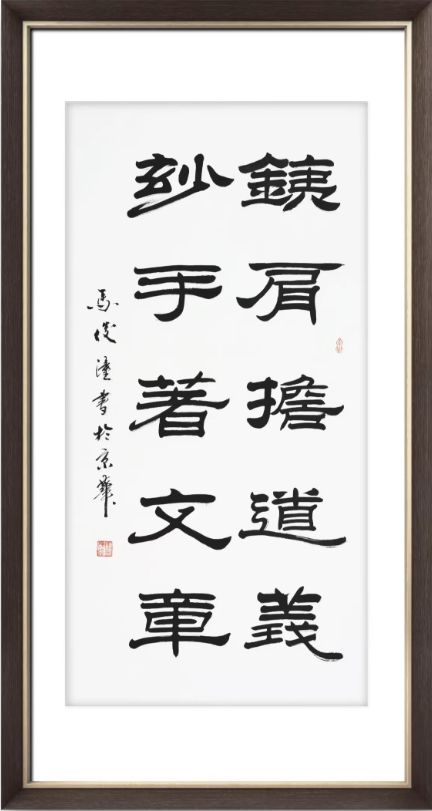 銕肩擔道義
玅手著文章
馬俊潼書於京華